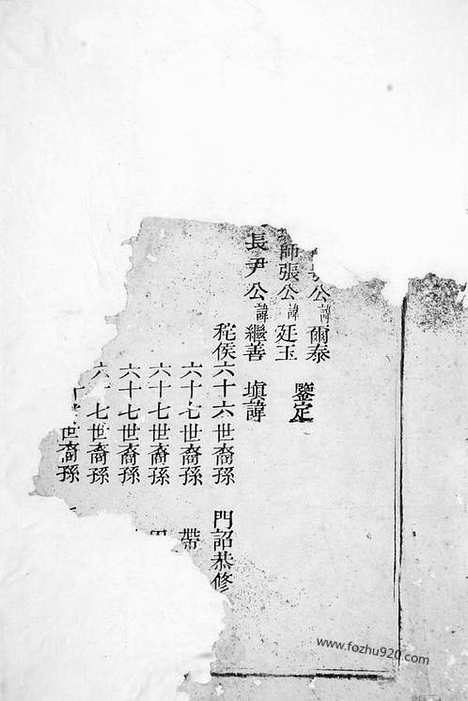 公諱爾泰
師張公諱廷玉 鑒定
長尹公諱繼善 填諱
秺侯六十六世裔孫 門詔恭修
六十七世裔孫 帶
六十七世裔孫
六十七世裔孫
六 七世裔孫
世裔孫
www.fozhu920.com